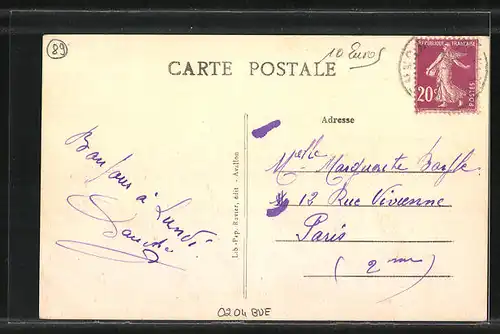 89
10 Euros
CARTE POSTALE
REPUBLIQUE FRANÇAISE
20c
POSTES
Adresse
Bonjour à Lundi.
Melle Marguerite
12 Rue Vivienne
Paris
(2me)
Lib.-Pap. Ravier, édit. - Avallon
0204 BUE